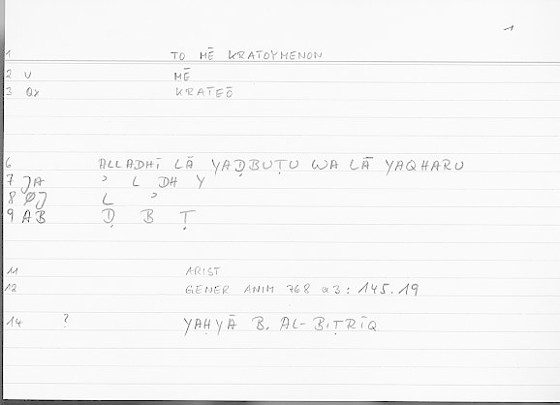 1
1 TO MĒ KRATOYMENON
2 V MĒ
3 QX KRATEŌ
6 ALLADHĪ LĀ YAḌBUṬU WA LĀ YAQHARU
7 JA ʾ L DH Y
8 ØJ L ʾ
9 AB Ḍ B Ṭ
11 ARIST
12 GENER ANIM 768 α3: 145.19
14 ? YAḤYĀ B. AL-BIṬRĪQ